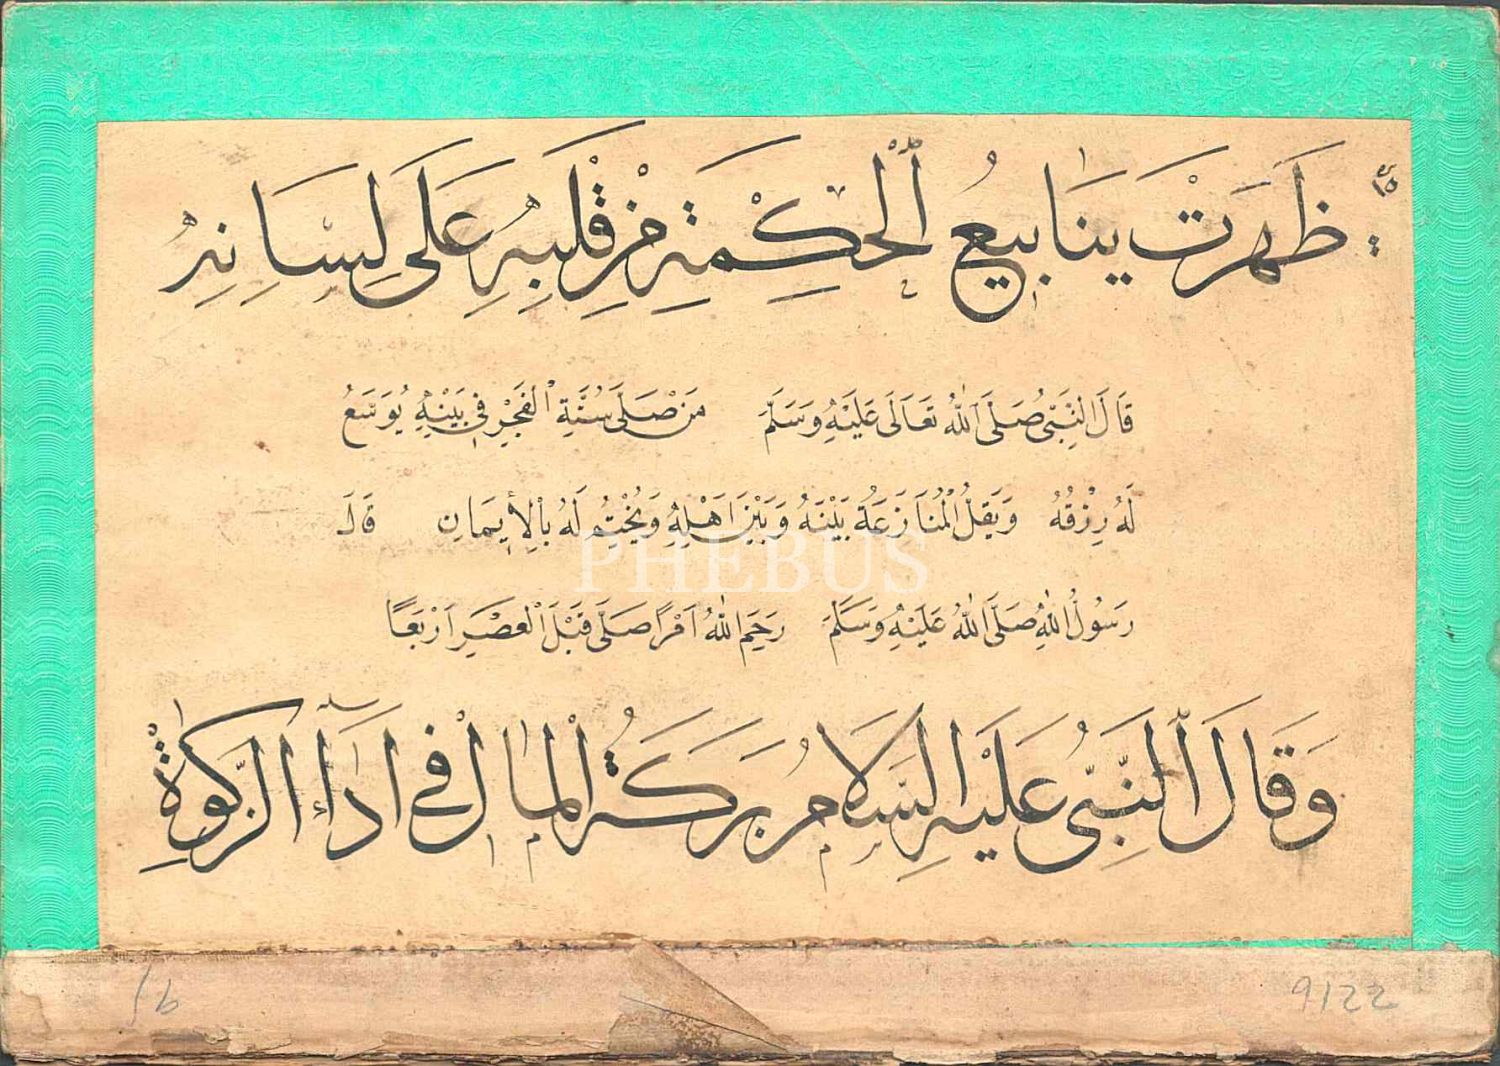 ظَهَرَتْ يَنَابِيعُ الْحِكْمَةِ مِنْ قَلْبِهِ عَلَى لِسَانِهِ
قَالَ النَّبِيُّ صَلَّى اللّٰهُ تَعَالَى عَلَيْهِ وَسَلَّمَ مَنْ صَلَّى سُنَّةَ الْفَجْرِ فِي بَيْتِهِ يُوَسَّعُ
لَهُ رِزْقُهُ وَيَقِلُّ الْمُنَازَعَةُ بَيْنَهُ وَبَيْنَ اَهْلِهِ وَيُخْتَمُ لَهُ بِالْإِيمَانِ قَالَ
رَسُولُ اللّٰهِ صَلَّى اللّٰهُ عَلَيْهِ وَسَلَّمَ رَحِمَ اللّٰهُ امْرَأً صَلَّى قَبْلَ الْعَصْرِ اَرْبَعًا
وَقَالَ النَّبِيُّ عَلَيْهِ السَّلَامُ بَرَكَةُ الْمَالِ فِي اَدَآءِ الزَّكٰوةِ
PHEBUS
9122